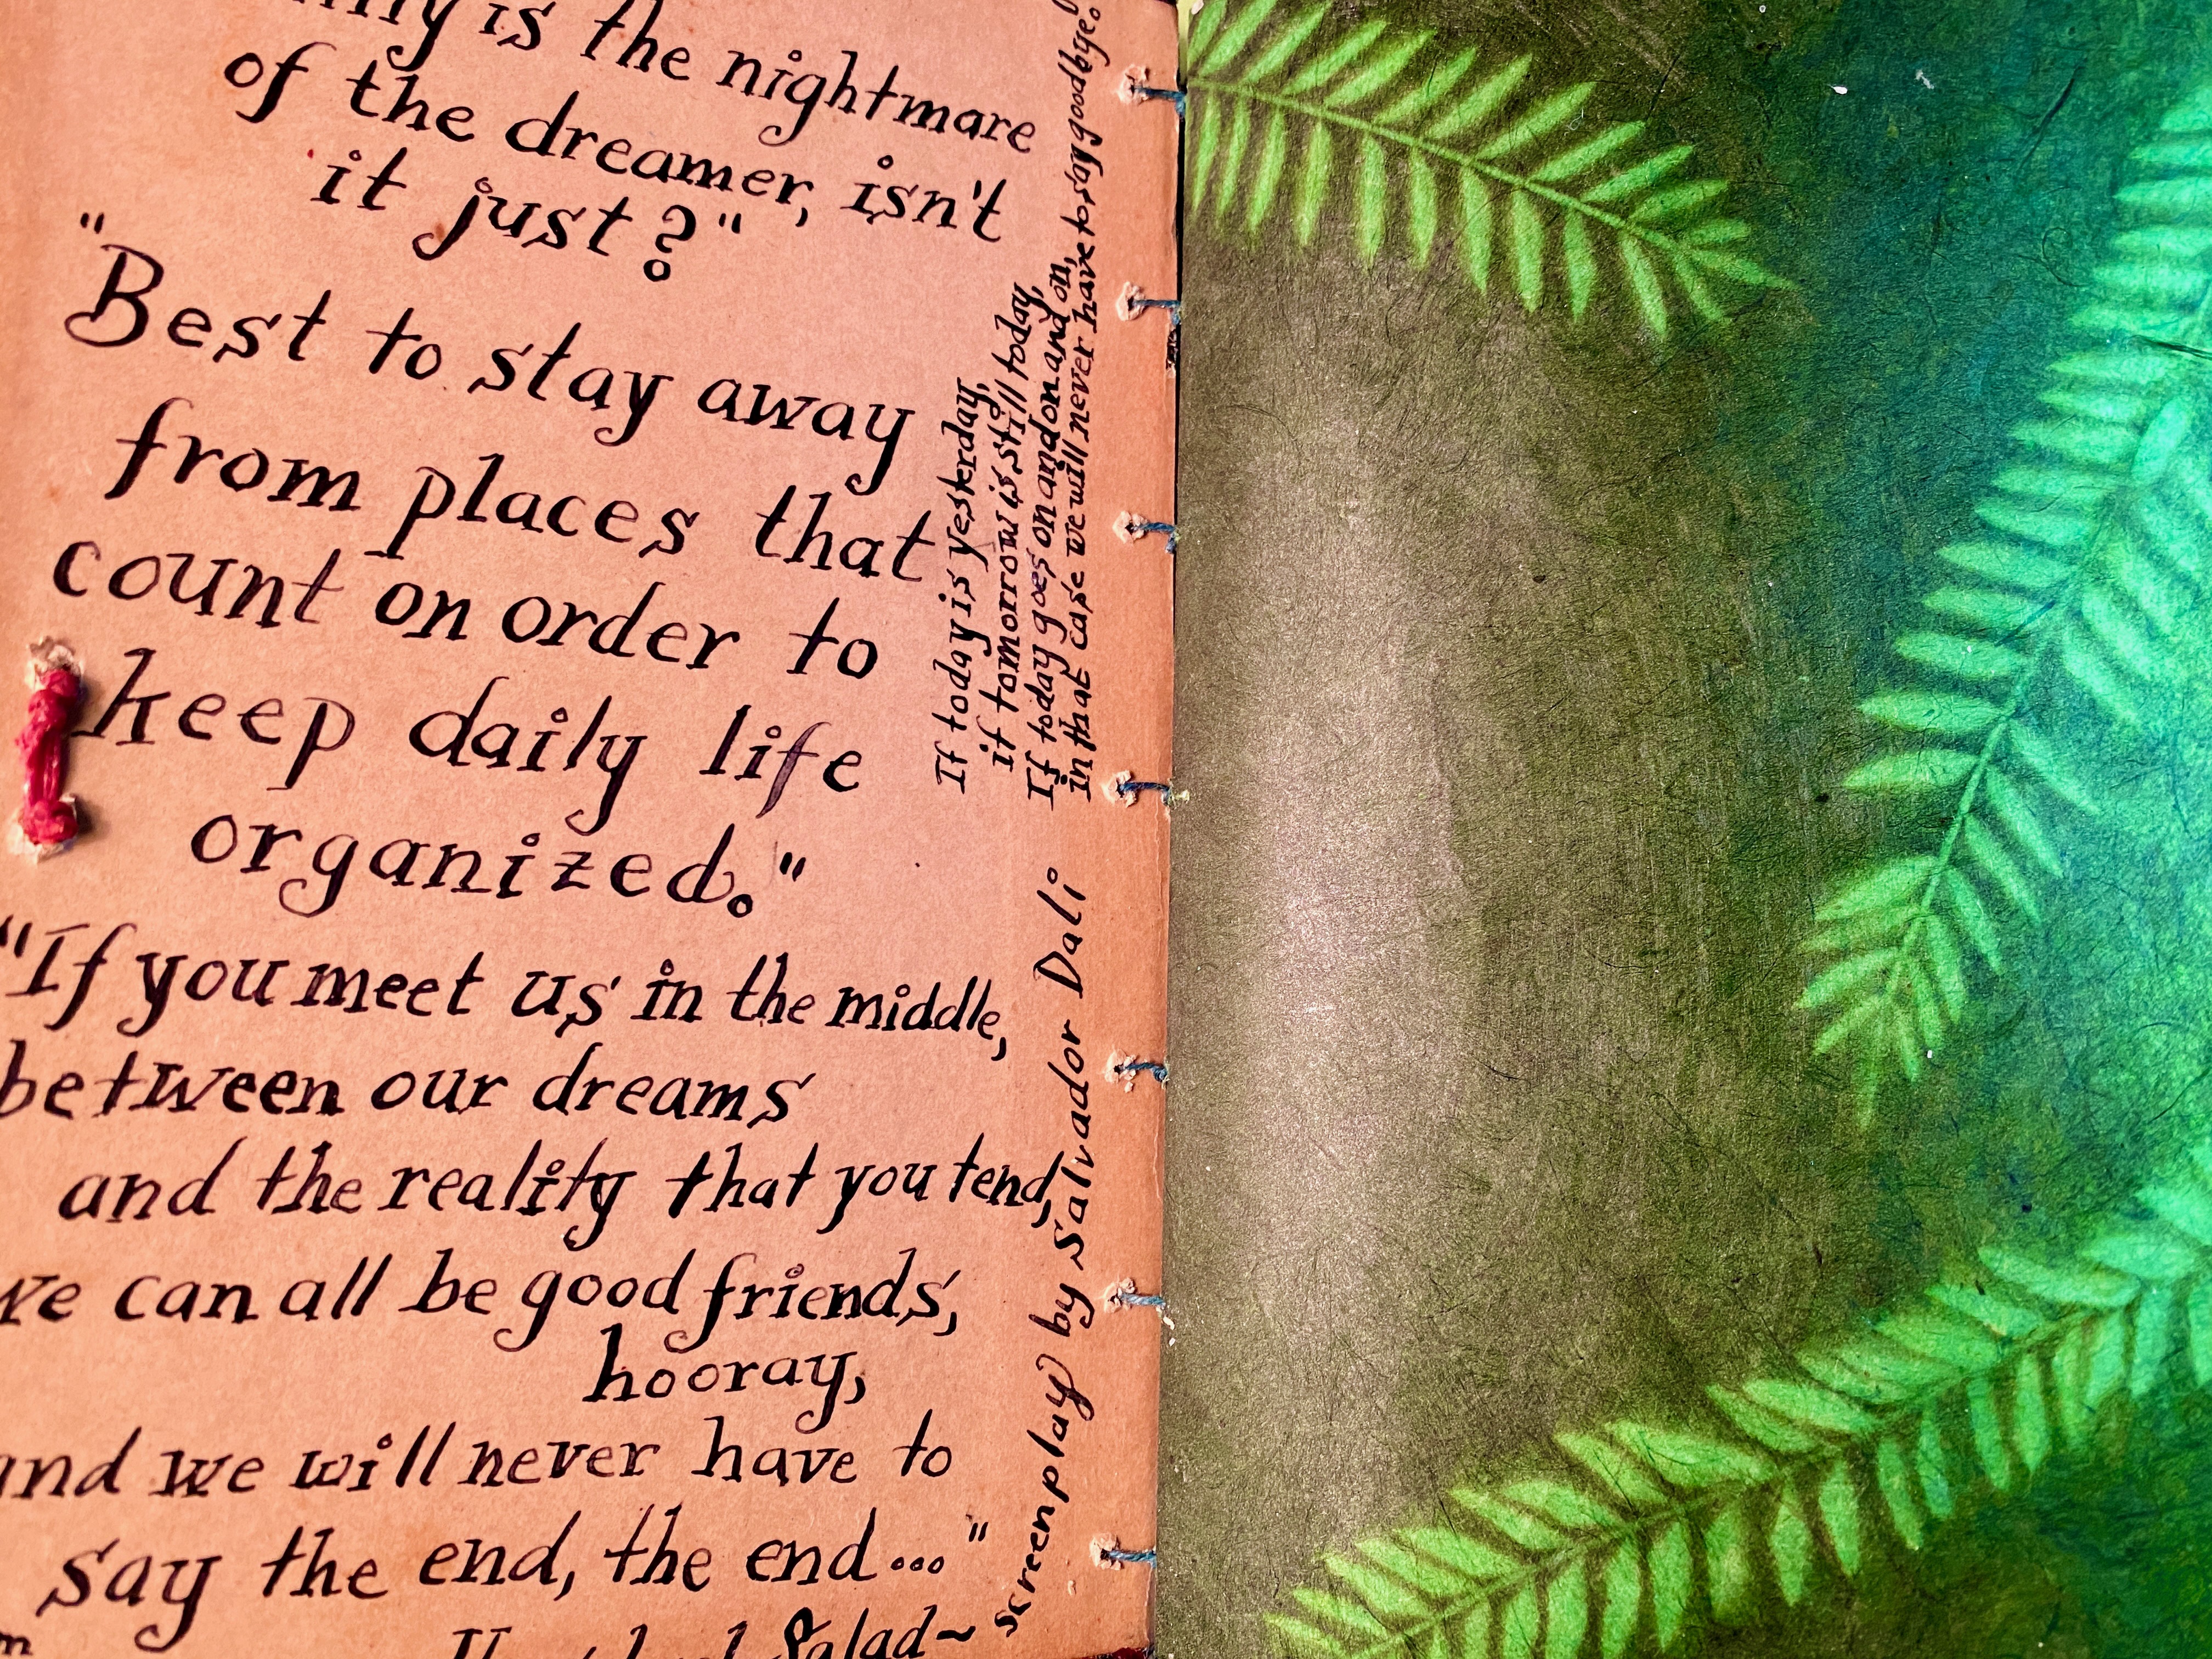 is the nightmare
of the dreamer, isn't
it just?"
"Best to stay away
from places that
count on order to
keep daily life
organized."
"If you meet us in the middle,
between our dreams
and the reality that you tend,
we can all be good friends,
hooray,
and we will never have to
say the end, the end..."
Salad~
If today is yesterday,
if tomorrow is still today,
If today goes on and on and on,
in that case we will never have to say goodbye.
screenplay) by Salvador Dali